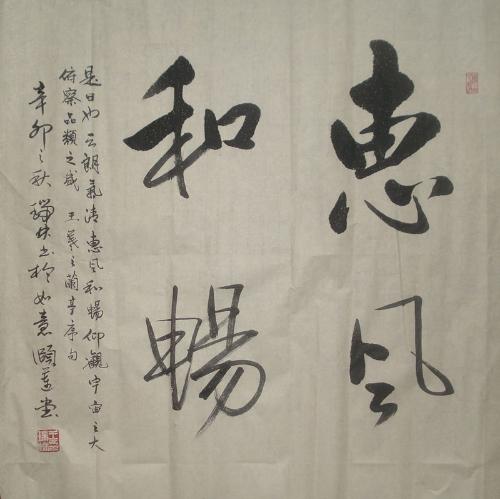 惠風
和暢
是日也天朗氣清惠風和暢仰觀宇宙之大
俯察品類之盛 王羲之蘭亭序句
辛卯之秋 書於如意頤蓮堂